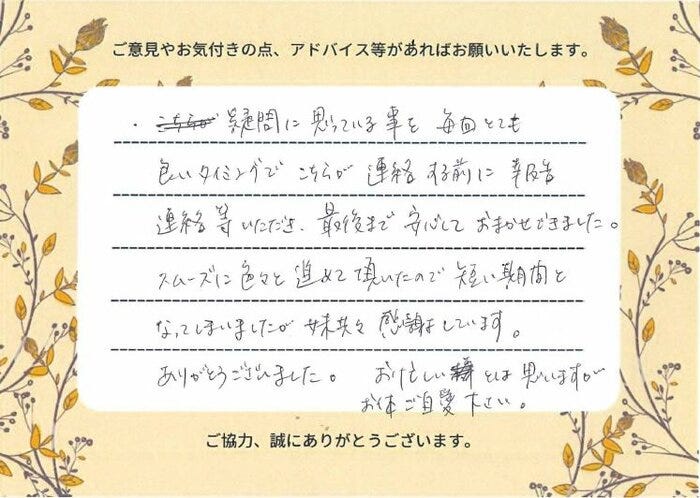 ご意見やお気付きの点、アドバイス等があればお願いいたします。
・疑問に思っている事を 毎回とても
良いタイミングで こちらが 連絡する前に 報告
連絡等いただき、最後まで 安心して おまかせできました。
スムーズに色々と進めて頂いたので 短い期間と
なってしまいましたが 妹共々 感謝しています。
ありがとうございました。 お忙しい とは思いますが
お体ご自愛下さい。
ご協力、誠にありがとうございます。